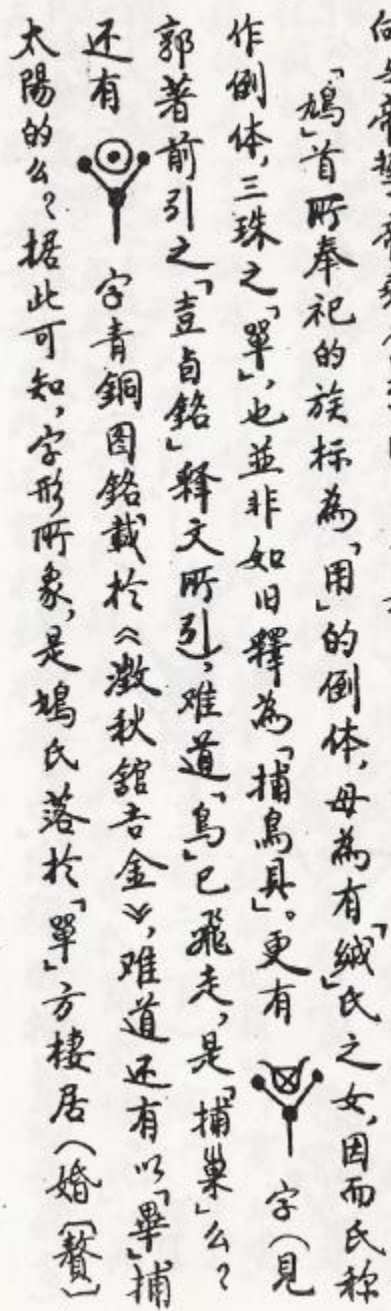 「鳩」首所奉祀的族标為「用」的倒体，母為有「絨」氏之女，因而氏称
作倒体，三珠之「單」，也並非如旧釋為「捕鳥具」。更有字（見
郭著前引之「壴卣銘」释文所引，难道「鳥」已飛走，是「捕巢」么？
还有字青銅图銘載於《澂秋館吉金》，难道还有以「畢」捕
太陽的么？据此可知，字形所象，是鳩氏落於「單」方棲居（婚〔贅〕